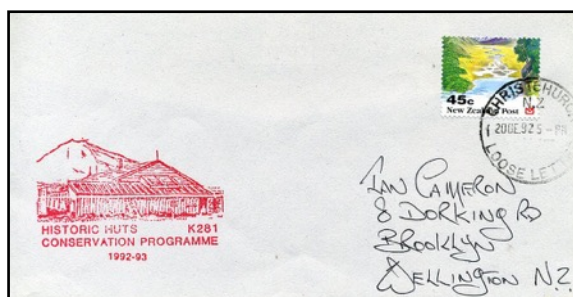 45c
New Zealand Post
CHRISTCHURCH
N.Z
20DE92 5-PM
LOOSE LETTER
HISTORIC HUTS K281
CONSERVATION PROGRAMME
1992-93
IAN CAMERON
8 DORKING RD
BROOKLYN
WELLINGTON N.Z.